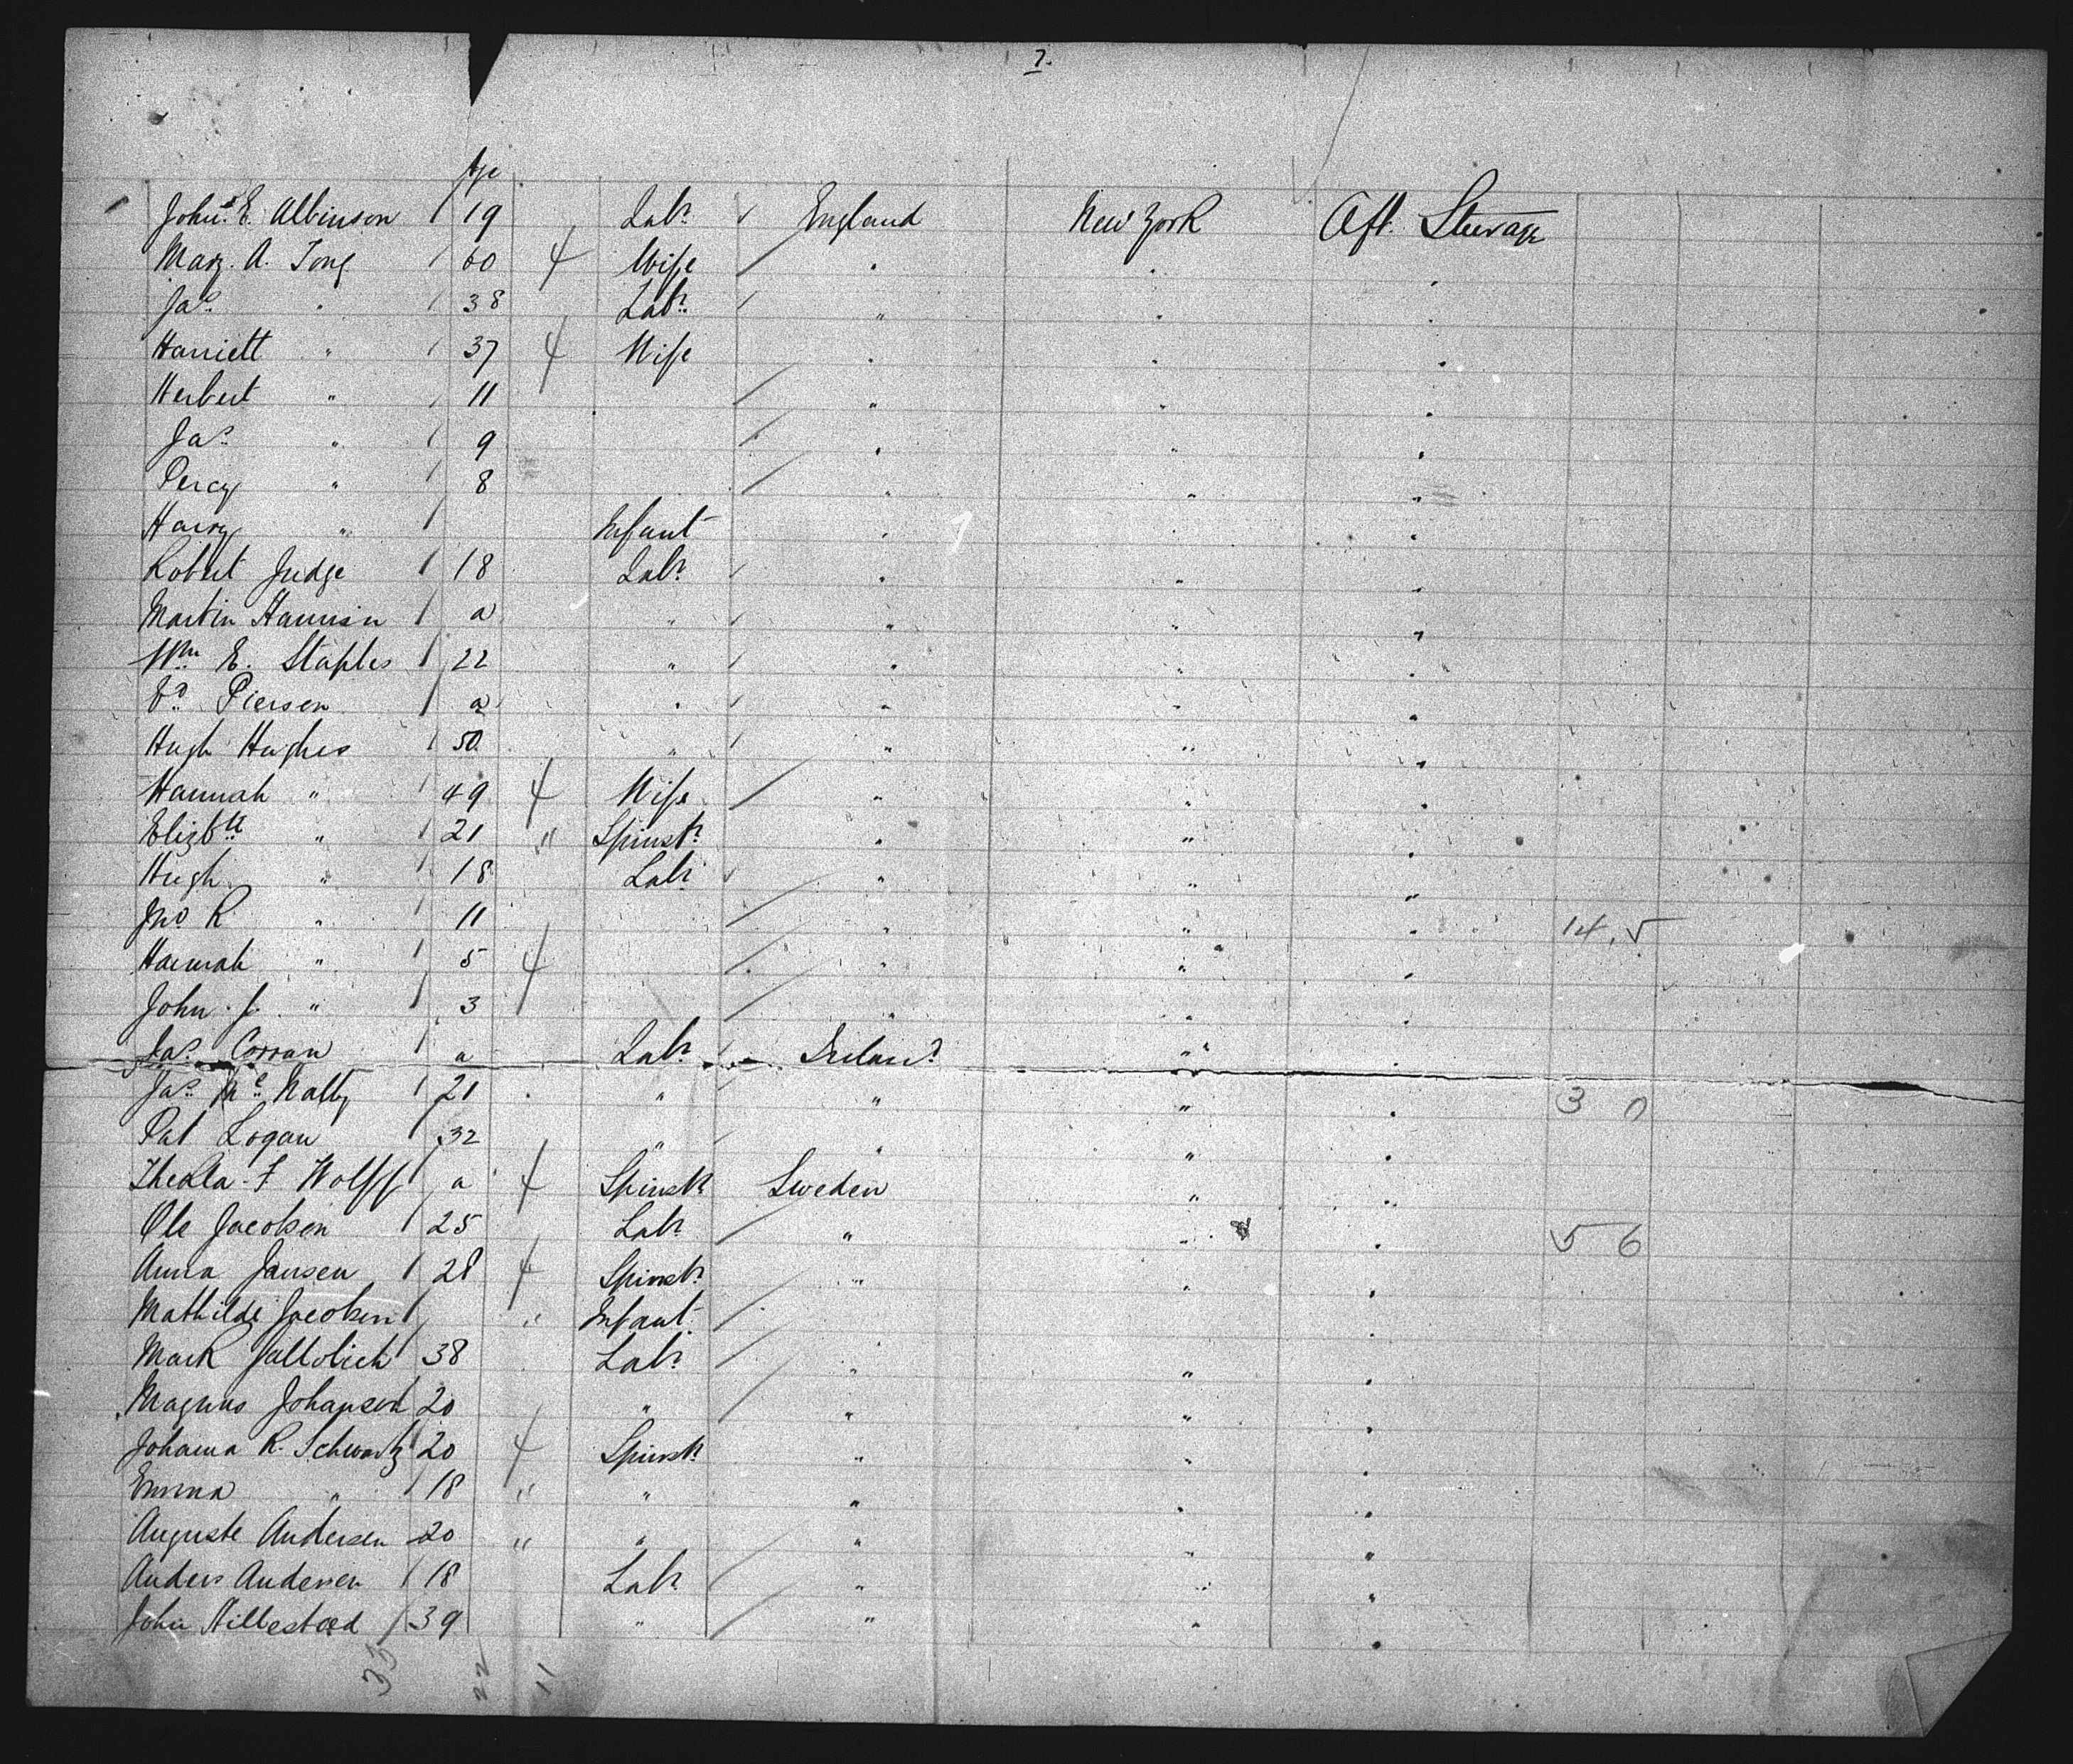 7.
Age
John E. Albinson 19 Labr England New York Aft. Steerage
Mary. A. Tong 60 4 Wife " " "
Jas " 38 Labr " " "
Harriett " 37 4 Wife " " "
Herbert " 11 " " "
Jas " 9 " " "
Percy " 8 " " "
Harry " Infant " " "
Robert Judge 18 Labr " " "
Martin a " " " "
Wm E. Staples 22 " " " "
Ed Piersen a " " " "
Hugh Hughes 50 " " " "
Hannah " 49 4 Wife " " "
Elizbth " 21 " Spinstr " " "
Hugh " 18 Labr " " "
Jno R " 11 " " " 14. 5
Hannah " 5 4 " " "
John. J. " 3 " " "
Jas Corran a Labr Ireland " "
Jas Mc Nally 21 " " " " 3 0
Pat Logan 32 " " " "
Thekla. F Wolff a 4 Spinstr Sweden " "
Ole Jacobsen 25 Labr " " " 5 6
Anna Jansen 28 4 Spinstr " " "
Mathilde Jacobsen " Infant "
Mark 38 Labr " " "
Magnus Johansen 20 " " " "
Johanna R. Schwartz 20 4 Spinstr " " "
Emma " 18 " " " " "
Auguste Andersen 20 " " " " "
Anders Andersen 18 Labr " " "
John Hillestad 39 " " " "
33 22 11